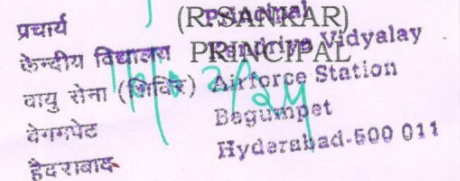 (R. SANKAR)
PRINCIPAL
प्रचार्य
केन्दीय विद्यालय
वायु सेना (शिविर)
वेगमपेट
हैदराबाद-
Principal
Kendriya Vidyalay
Airforce Station
Begumpet
Hyderabad-500 011